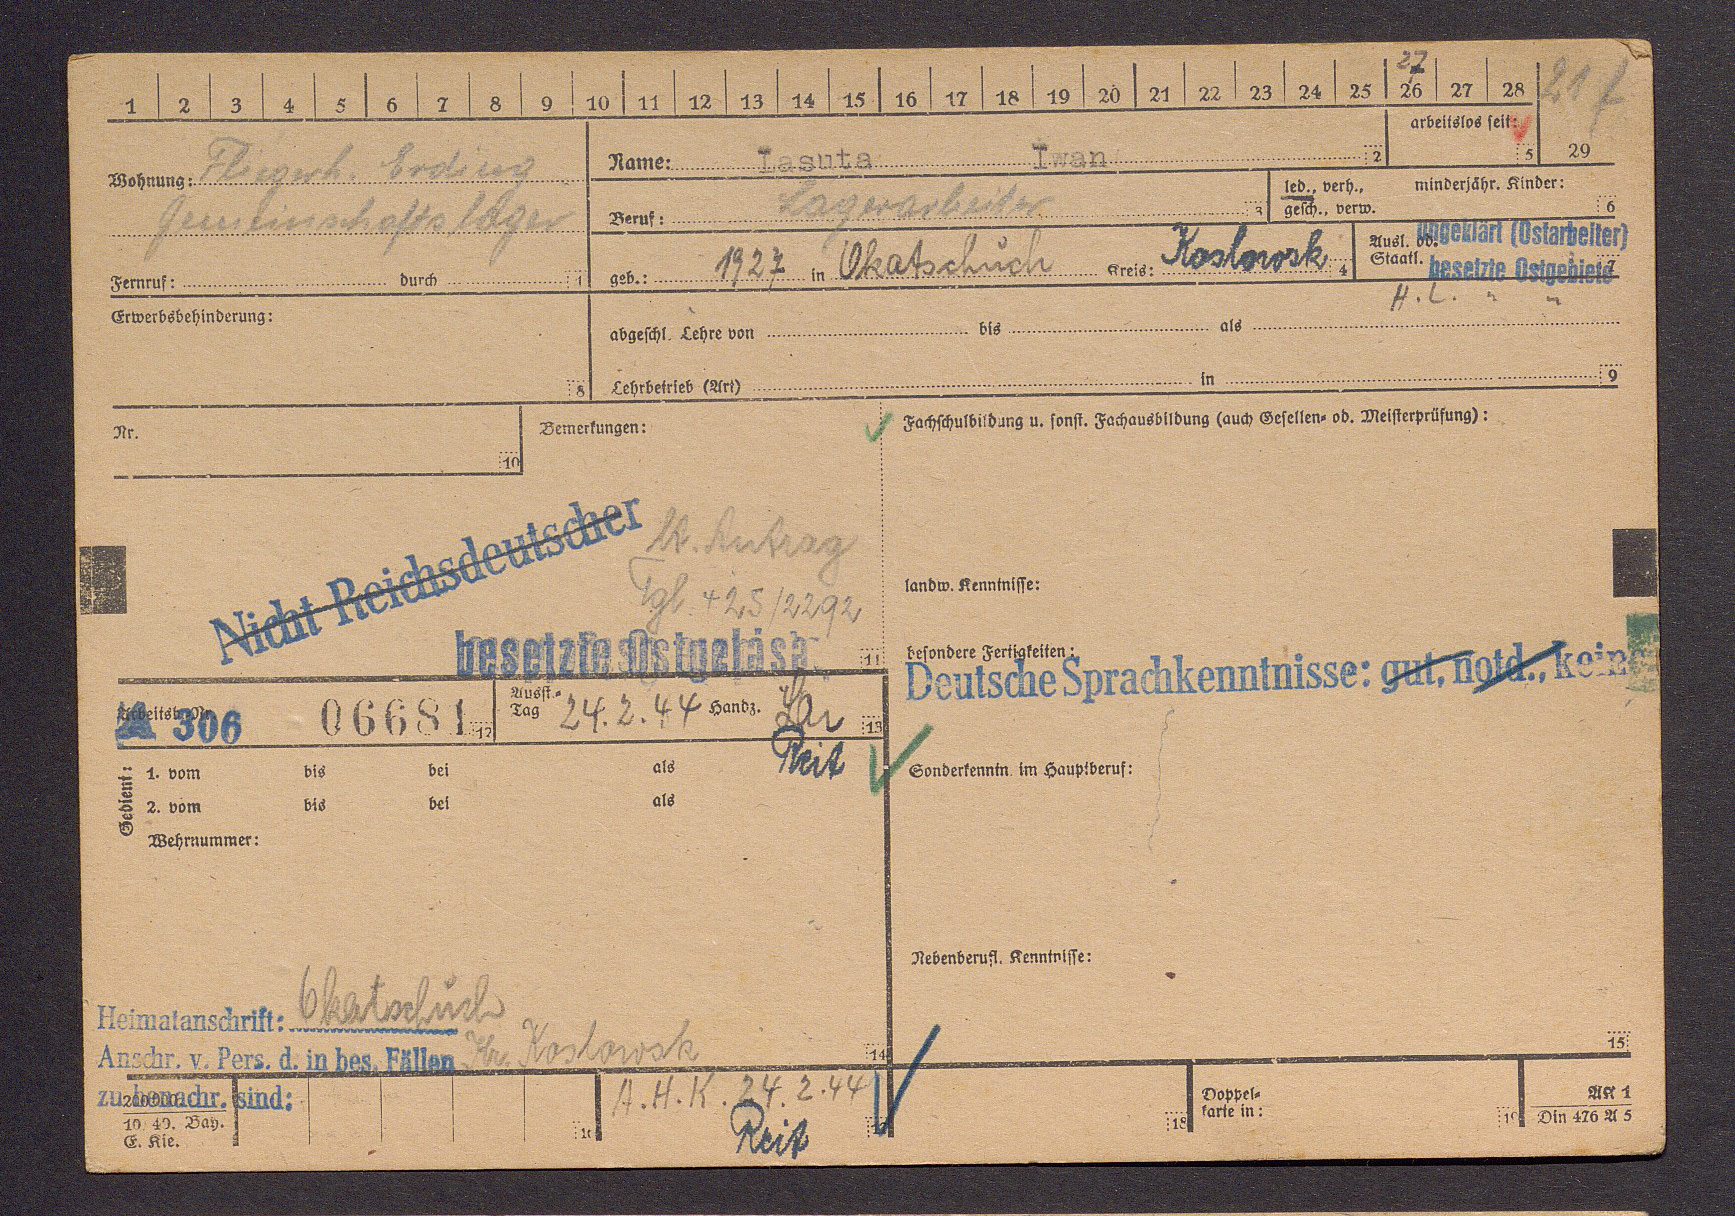 1 2 3 4 5 6 7 8 9 10 11 12 13 14 15 16 17 18 19 20 21 22 23 24 25 26 27 28
27
21
arbeitslos seit:
5
29
Wohnung: Fliegerh. Erding
Gemeinschaftslager
Fernruf: durch 1
Name: Lasuta Iwan 2
Beruf: Lagerarbeiter 3
led., verh.,
gesch., verw.
minderjähr. Kinder:
6
geb.: 1927 in Okatschuch Kreis: Koslowsk 4
Ausl. od.
Staatl.
ungeklärt (Ostarbeiter)
besetzte Ostgebiete
7
H. L. " "
Erwerbsbehinderung:
8
abgeschl. Lehre von bis als
Lehrbetrieb (Art) in 9
Nr.
10
Bemerkungen:
Nicht Reichsdeutscher
Antrag
Tgl. + 25/2292
besetzte Ostgebiete
11
Fachschulbildung u. sonst. Fachausbildung (auch Gesellen- od. Meisterprüfung):
landw. Kenntnisse:
besondere Fertigkeiten:
Deutsche Sprachkenntnisse: gut, notd., keine
Arbeitsb. Nr.
A 306 06681 12
Ausst.-
Tag 24.2.44 Handz. 13
Reit
Gedient:
1. vom bis bei als
2. vom bis bei als
Wehrnummer:
Sonderkenntn. im Hauptberuf:
Nebenberufl. Kenntnisse:
15
Heimatanschrift: Okatschuch
Anschr. v. Pers. d. in bes. Fällen Kr. Koslowsk
14
zu benachr. sind:
10. 40. Bay.
E. Kie.
16
A.H.K. 24.2.44
Reit
17
18
Doppel-
karte in:
19
AK 1
Din 476 A 5